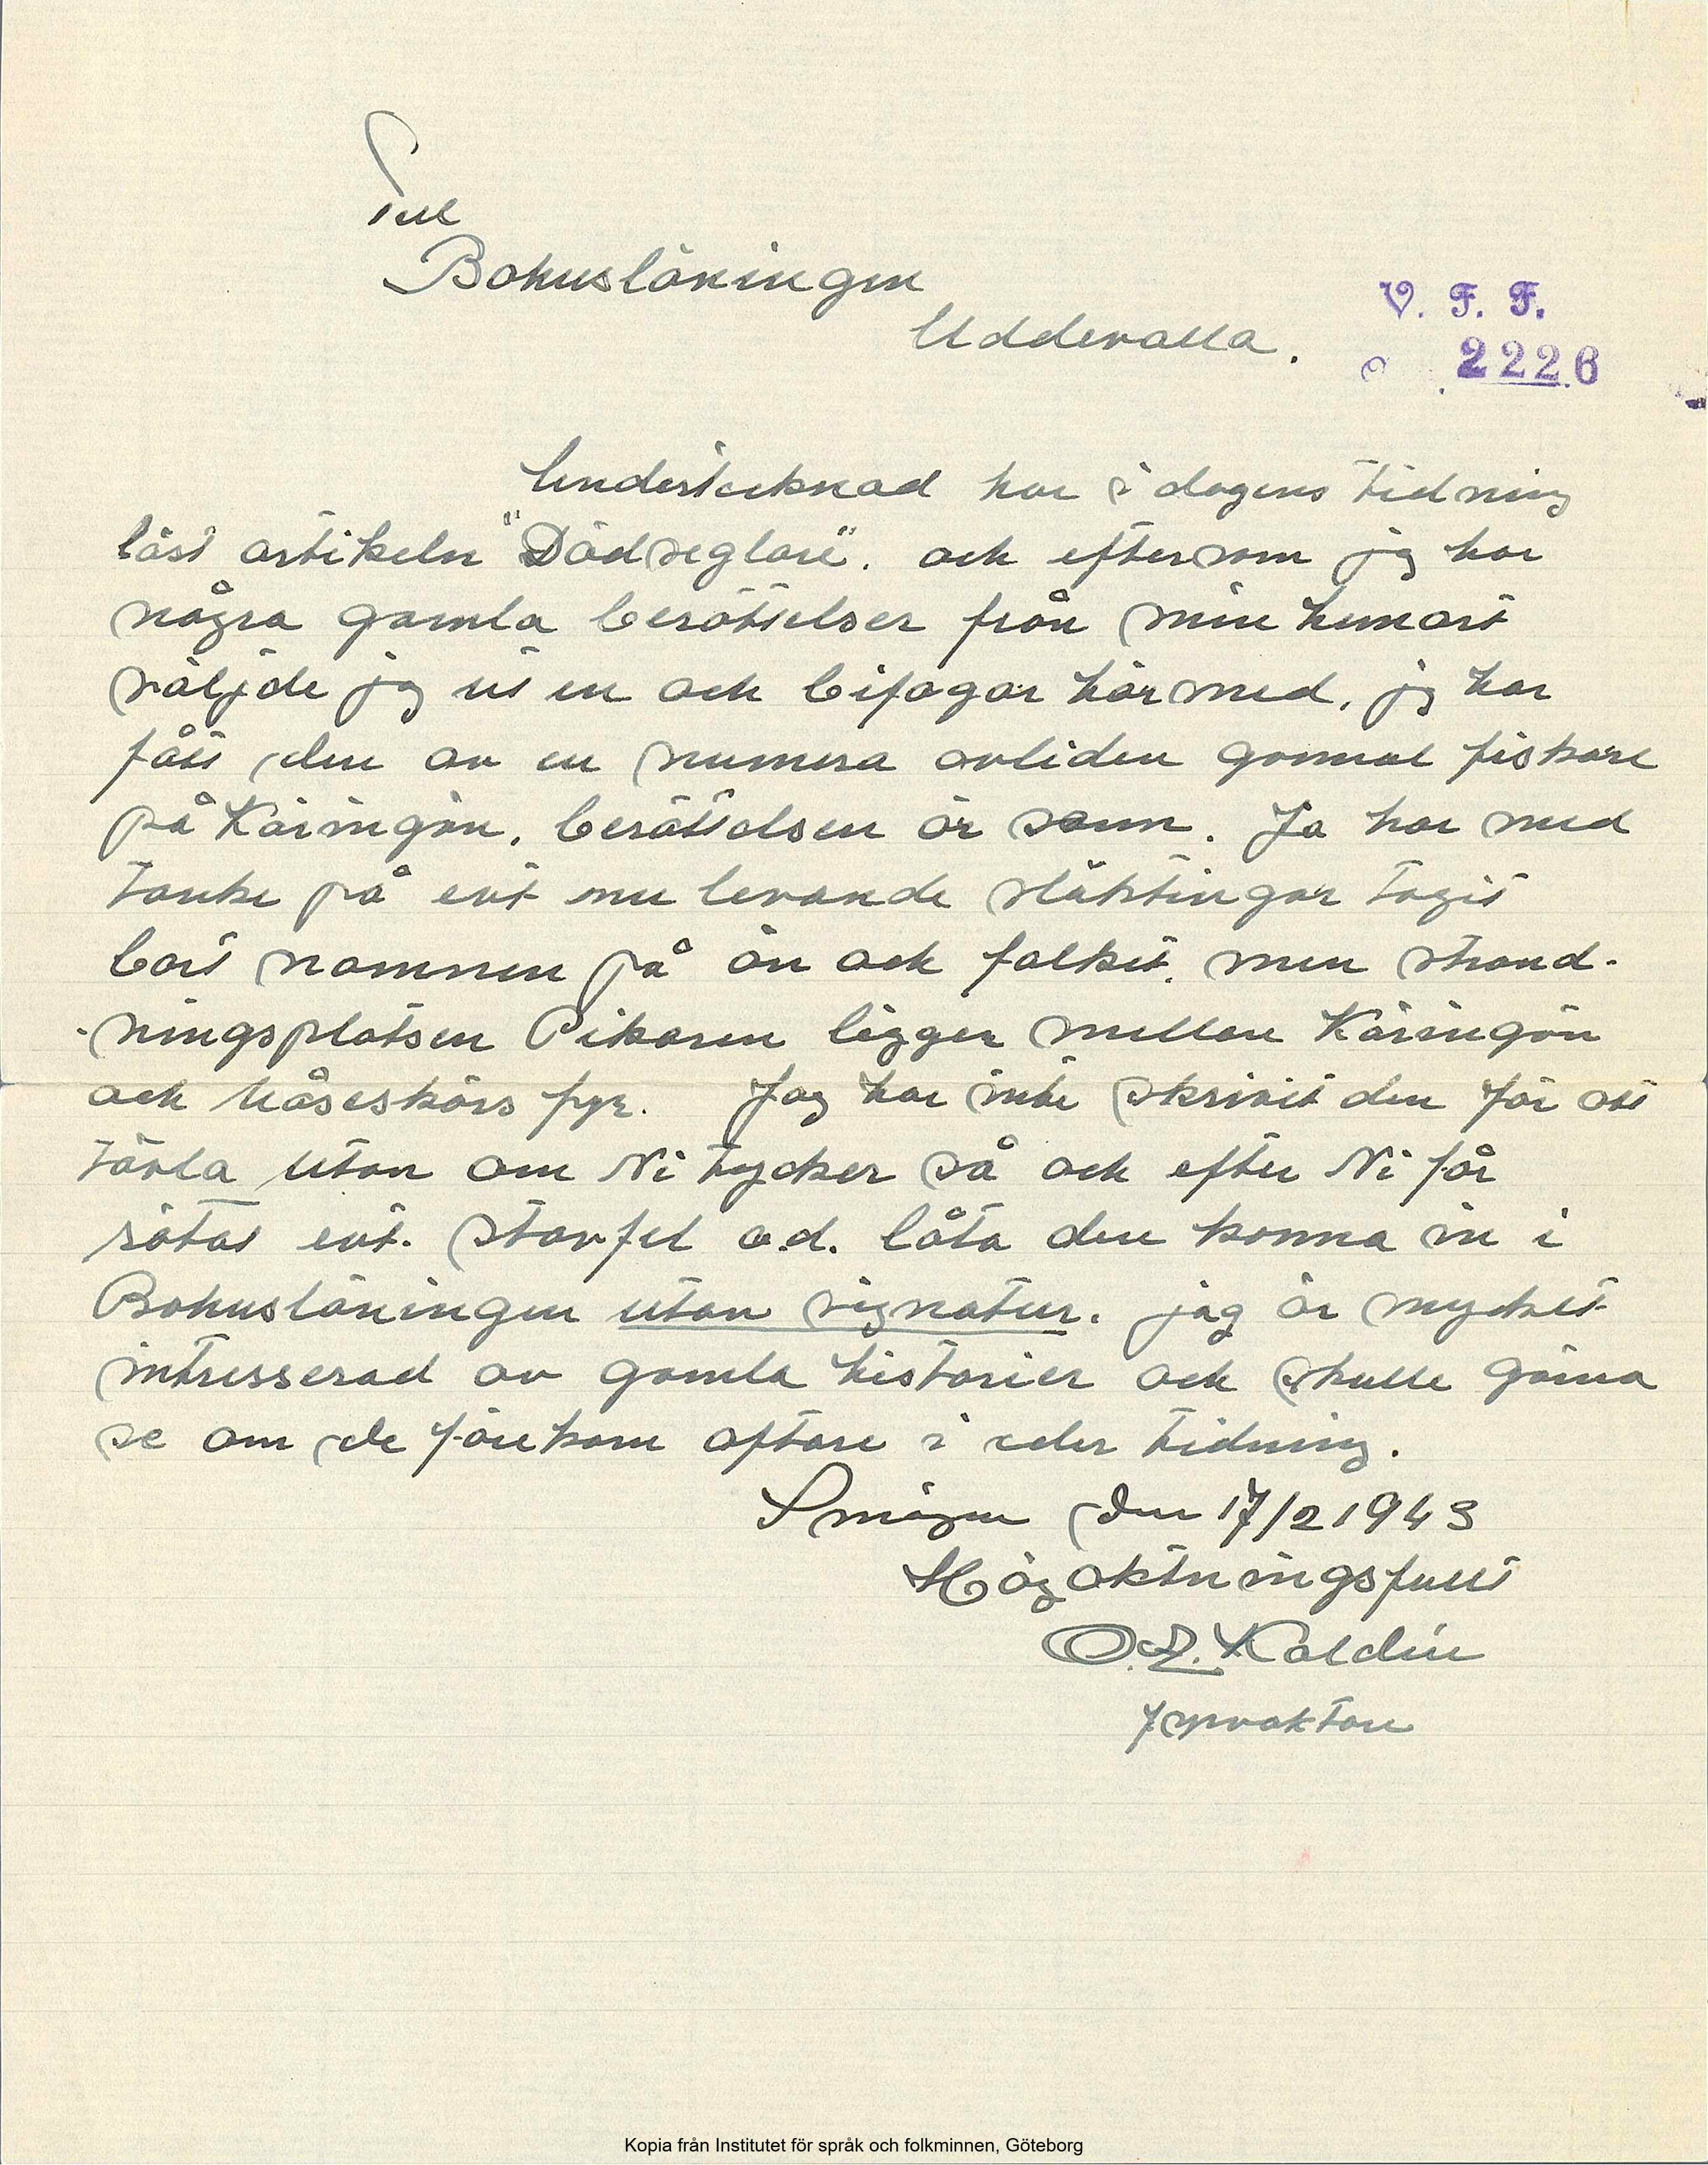 Till
Bohusläningen
Uddevalla.
V. F. F.
2226
Undertecknad har i dagens tidning
läst artikeln "Dödseglare". och eftersom jag har
några gamla berättelser från min hemort
väljde jag ut en och bifogar härmed, jag har
fått den av en numera avliden gammal fiskare
på Käringön, berättelsen är sann. Ja har med
tanke på evt nu levande släktingar tagit
bort namnen på ön och folket, men strand-
-ningsplatsen Pikaren ligger mellan Käringön
och Måseskärs fyr. Jag har inte skrivit den för att
tävla utan om Ni tycker så och efter Ni får
rätat evt. stavfel o.d. låta den komma in i
Bohusläningen utan signatur. jag är mycket
intresserad av gamla historier och skulle gärna
se om de förekom oftare i eder tidning.
Smögen den 17/2 1943
Högaktningsfullt
O.E. Kaldin
fyrvaktare
Kopia från Institutet för språk och folkminnen, Göteborg